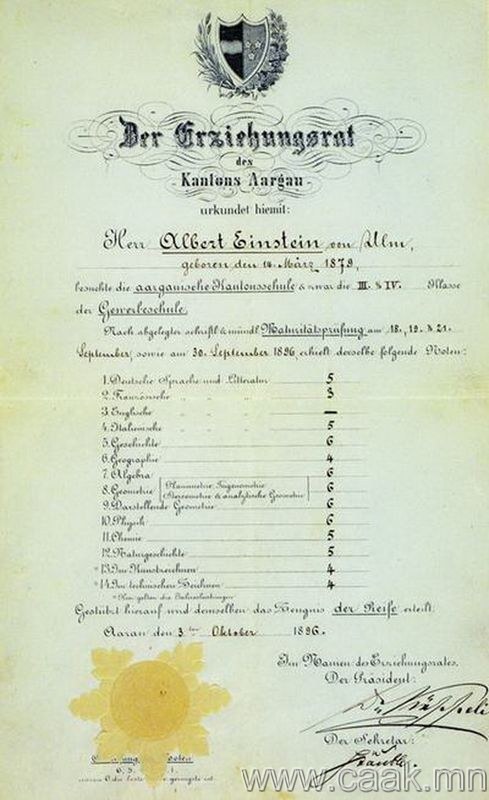 Der Erziehungsrat
des
Kantons Aargau
urkundet hiemit:
Herr Albert Einstein von Ulm,
geboren den 14. März 1879,
besuchte die aargauische Kantonsschule & zwar die III. & IV. Klasse
der Gewerbeschule.
Nach abgelegter schriftl. & mündl. Maturitätsprüfung am 18., 19. & 21.
September, sowie am 30. September 1896, erhielt derselbe folgende Noten:
1. Deutsche Sprache und Litteratur 5
2. Französische " " " 3
3. Englische " " " —
4. Italienische " " " 5
5. Geschichte 6
6. Geographie 4
7. Algebra 6
8. Geometrie Planimetrie, Trigonometrie 6
Stereometrie & analytische Geometrie
9. Darstellende Geometrie 6
10. Physik 6
11. Chemie 5
12. Naturgeschichte 5
* 13. Im Kunstzeichnen 4
* 14. Im technischen Zeichnen 4
* Hier gelten die Jahresleistungen.
Gestützt hierauf wird demselben das Zeugnis der Reife erteilt.
Aarau den 3ten Oktober 1896.
Im Namen des Erziehungsrates,
Der Präsident:
Der Sekretär:
6, 5, 1.
wovon 6 die beste, 1 die geringste ist.
www.caak.mn